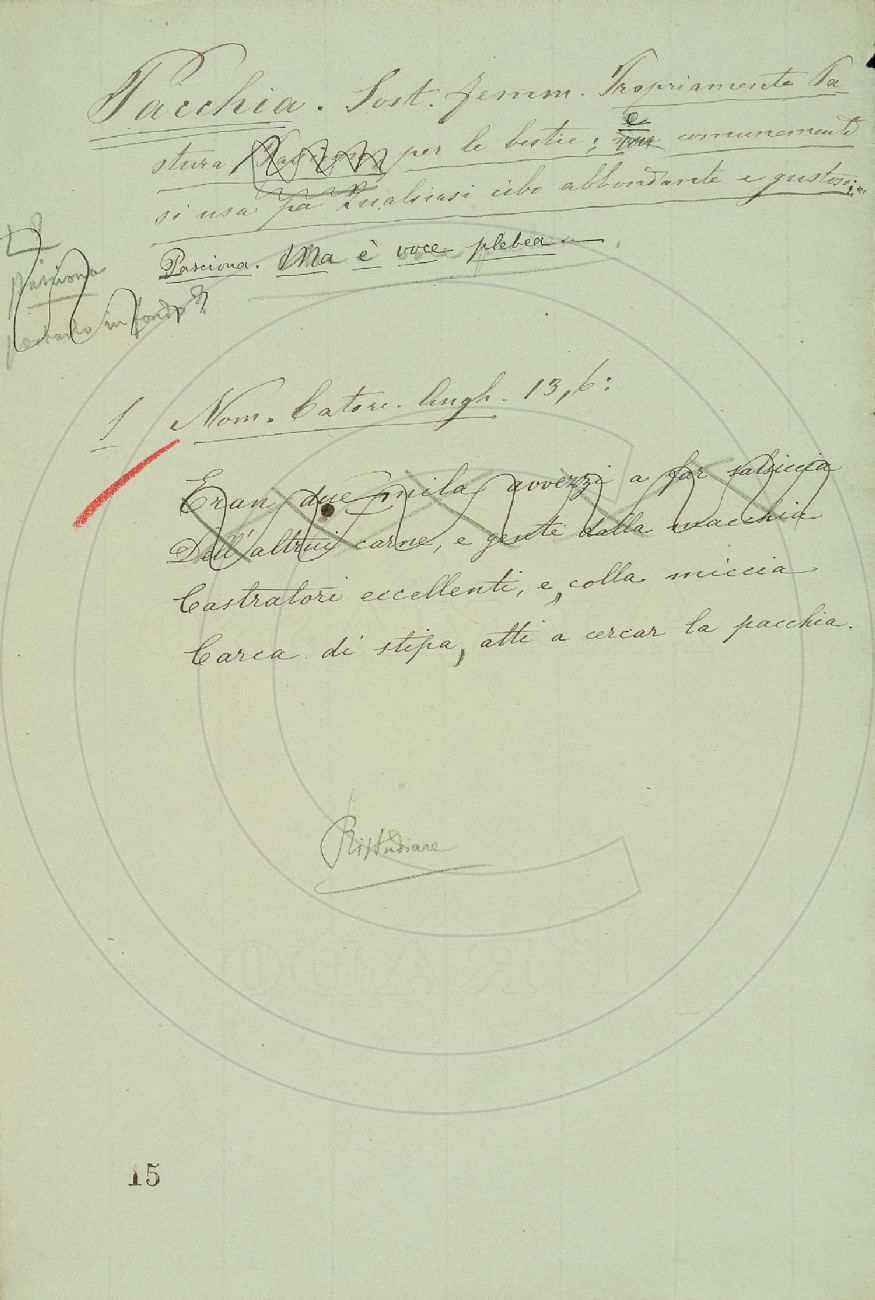 Pacchia. Sost. femm. Propriamente Pa
stura per le bestie; e comunemente
si usa p Qualsiasi cibo abbondante e gustoso;
Pasciona. Ma è voce plebea.
pasciona
in fondo
1 Nom. Cator. Angh. 13, 6:
Eran due mila avvezzi a far salsiccia
Dell'altrui carne, e gente dalla macchia
Castratori eccellenti, e, colla miccia
Carca di stipa, atti a cercar la pacchia.
Ristudiare
15